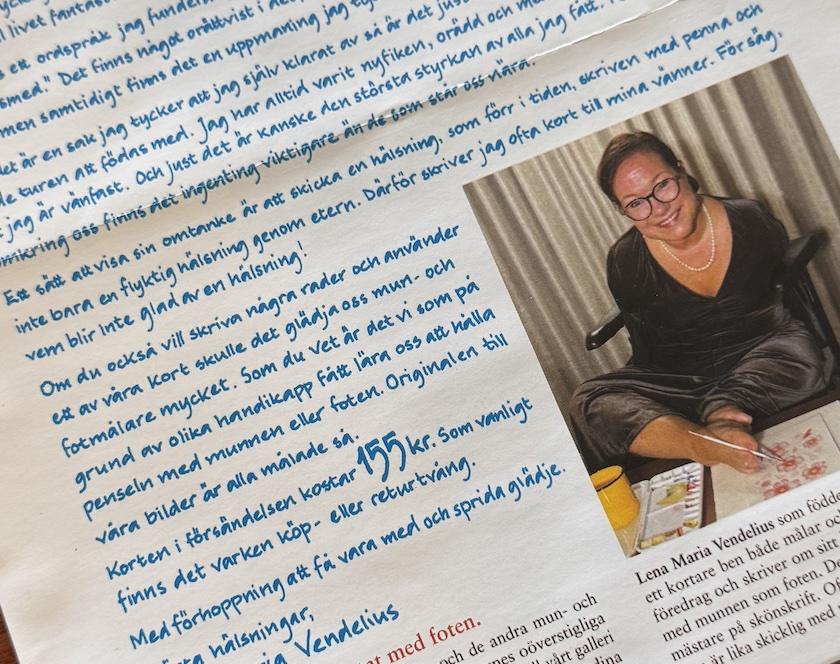 livet fantas
s ett ordspråk jag funder
smed." Det finns något orättvist i de
men samtidigt finns det en uppmaning jag ty
det är en sak jag tycker att jag själv klarat av så är det just
de turen att födas med. Jag har alltid varit nyfiken, orädd och me
t jag är vänfast. Och just det är kanske den största styrkan av alla jag fått.
omkring oss finns det ingenting viktigare än de som står oss nära.
Ett sätt att visa sin omtanke är att skicka en hälsning, som förr i tiden, skriven med penna och
inte bara en flyktig hälsning genom etern. Därför skriver jag ofta kort till mina vänner. För säg,
vem blir inte glad av en hälsning!
Om du också vill skriva några rader och använder
ett av våra kort skulle det glädja oss mun- och
fotmålare mycket. Som du vet är det vi som på
grund av olika handikapp fått lära oss att hålla
penseln med munnen eller foten. Originalen till
våra bilder är alla målade så.
Korten i försändelsen kostar 155 kr. Som vanligt
finns det varken köp- eller returtvång.
Med förhoppning att få vara med och sprida glädje.
sta hälsningar,
ia Vendelius
at med foten.
och de andra mun- och
nes oöverstigliga
ll vårt galleri
lina
Lena Maria Vendelius som födde
ett kortare ben både målar oc
föredrag och skriver om sitt
med munnen som foten. De
mästare på skönskrift.
för lika skicklig med